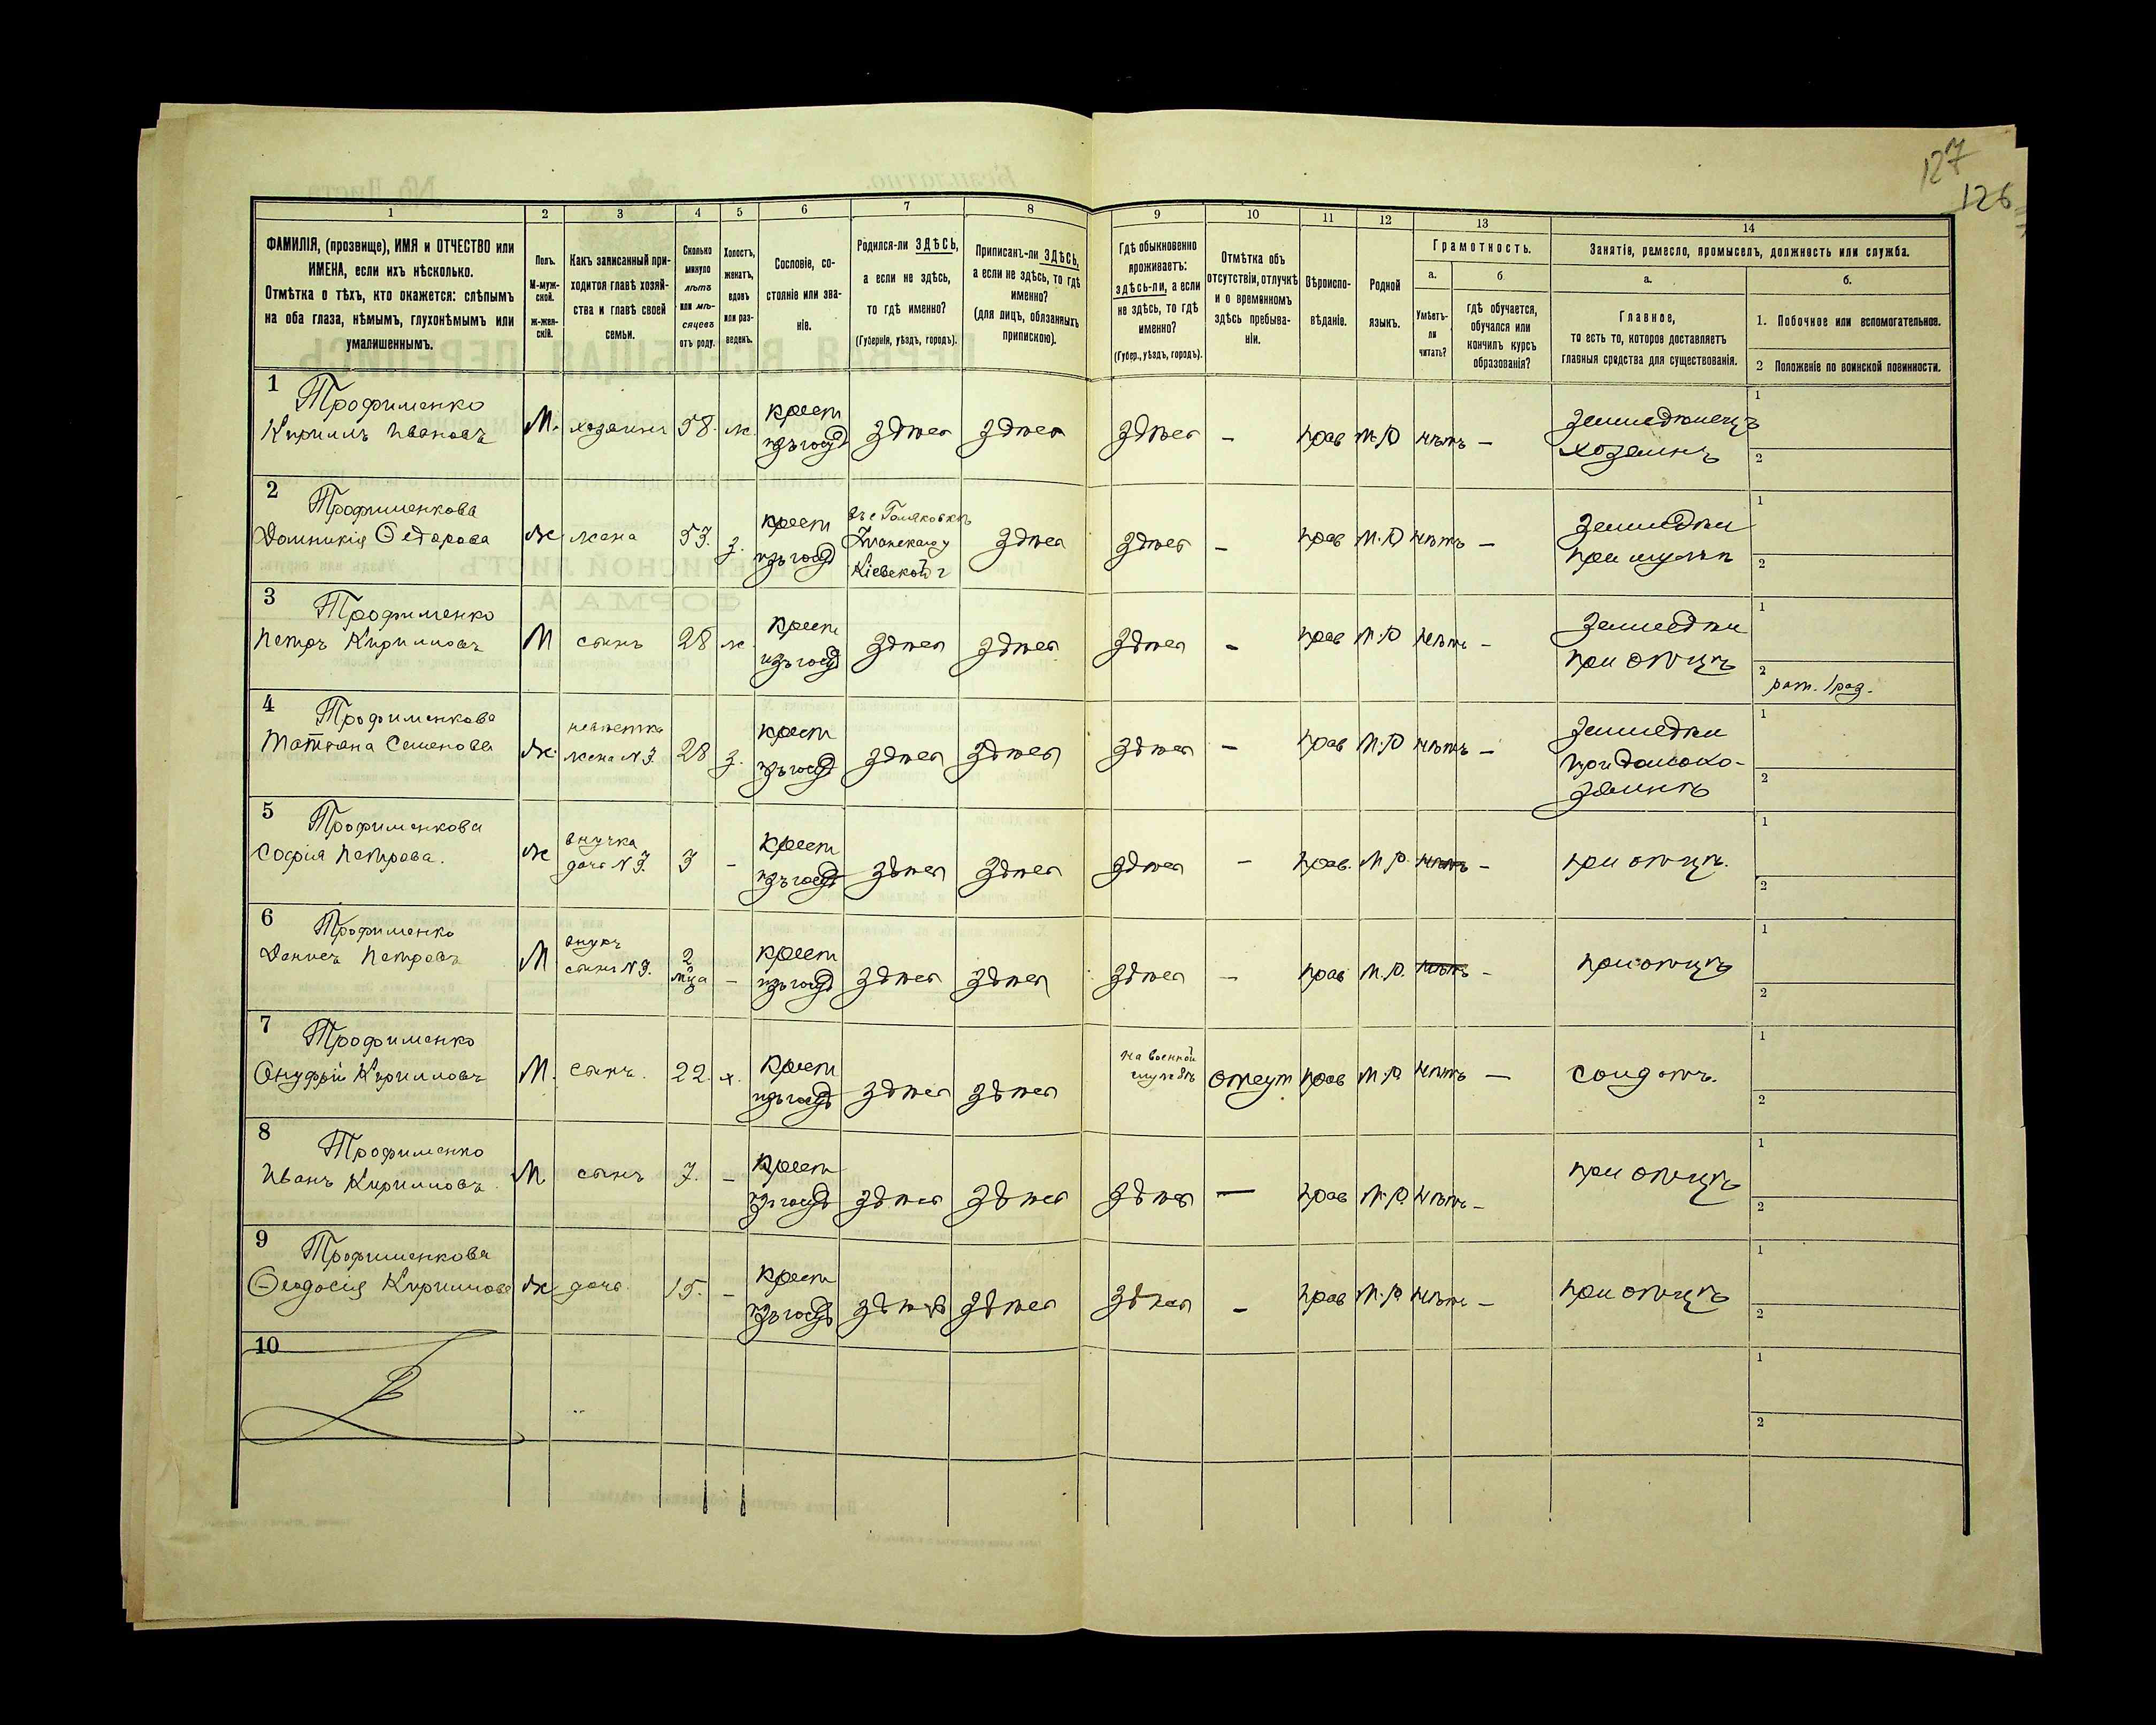 127
126
1
2
3
4
5
6
7
8
9
10
11
12
13
14
ФАМИЛІЯ, (прозвище), ИМЯ и ОТЧЕСТВО или
ИМЕНА, если ихъ нѣсколько.
Отмѣтка о тѣхъ, кто окажется: слѣпымъ
на оба глаза, нѣмымъ, глухонѣмымъ или
умалишеннымъ.
Полъ.
М-муж-
ской.
Ж-жен-
скій.
Какъ записанный при-
ходится главѣ хозяй-
ства и главѣ своей
семьи.
Сколько
минуло
лѣтъ
или мѣ-
сяцевъ
отъ роду.
Холостъ,
женатъ,
вдовъ
или раз-
веденъ.
Сословіе, со-
стояніе или зва-
ніе.
Родился-ли ЗДѢСЬ,
а если не здѣсь,
то гдѣ именно?
(Губернія, уѣздъ, городъ).
Приписанъ-ли ЗДѢСЬ,
а если не здѣсь, то гдѣ
именно?
(для лицъ, обязанныхъ
припискою).
Гдѣ обыкновенно
проживаетъ:
здѣсь-ли, а если
не здѣсь, то гдѣ
именно?
(Губер., уѣздъ, городъ).
Отмѣтка объ
отсутствіи, отлучкѣ
и о временномъ
здѣсь пребыва-
ніи.
Вѣроиспо-
вѣданіе.
Родной
языкъ.
Грамотность.
а.
Умѣетъ-
ли
читать?
б.
гдѣ обучается,
обучался или
кончилъ курсъ
образованія?
Занятіе, ремесло, промыселъ, должность или служба.
а.
Главное,
то есть то, которое доставляетъ
главныя средства для существованія.
б.
1. Побочное или вспомогательное.
2 Положеніе по воинской повинности.
1
Трофименко
Кириллъ Ивановъ
М. хозяинъ 58. ж.
крест
изъ госуд
здѣсь здѣсь здѣсь – прав М.Р нѣтъ –
земледѣлецъ
хозяинъ
1
2
2
Трофименкова
Домникія Ѳедорова
Ж жена 53. з.
крест
изъ госуд
Кіевской г
здѣсь здѣсь – прав М.Р нѣтъ –
земледѣл
при мужѣ
1
2
3
Трофименко
Петръ Кирилловъ
М сынъ 28 ж
крест
изъ госуд
здѣсь здѣсь здѣсь – прав М.Р нѣтъ –
земледѣл
при отцѣ
1
2
рат. 1 раз.
4
Трофименкова
Татіяна Семенова
Ж.
невѣстка
жена N 3.
28 з.
крест
изъ госуд
здѣсь здѣсь здѣсь – прав М.Р нѣтъ –
земледѣл
при домохо-
зяинѣ
1
2
5
Трофименкова
Софія Петрова.
Ж
внучка
дочь N 3.
3 –
крест
изъ госуд
здѣсь здѣсь здѣсь – прав. М.Р. нѣтъ –
при отцѣ.
1
2
6
Трофименко
Денисъ Петровъ
М
внукъ
сынъ N 3.
2
мца
–
крест
изъ госуд
здѣсь здѣсь здѣсь – прав М.Р. нѣтъ –
при отцѣ
1
2
7
Трофименко
Онуфрій Кирилловъ
М. сынъ. 22. х.
крест
изъ госуд
здѣсь здѣсь
на военной
службѣ
отсут прав М.Р. нѣтъ –
солдатъ.
1
2
8
Трофименко
Иванъ Кирилловъ.
М сынъ 7. –
крест
изъ госуд
здѣсь здѣсь здѣсь – прав М.Р. нѣтъ –
при отцѣ
1
2
9
Трофименкова
Ѳеодосія Кириллова
Ж дочь. 15. –
крест
изъ госуд
здѣсь здѣсь здѣсь – прав М.Р. нѣтъ –
при отцѣ
1
2
10
1
2